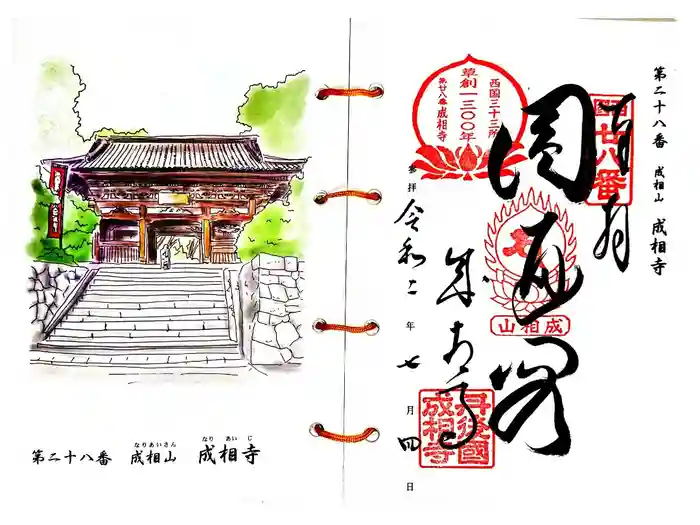 第二十八番 成相山 成相寺
奉拝
西国 廿八番
圓通閣
成相寺
西国三十三所
草創一三〇〇年
第廿八番成相寺
成相山
丹後國
成相寺
参拝 令和二年七月四日
なりあいさん なりあいじ
第二十八番 成相山 成相寺